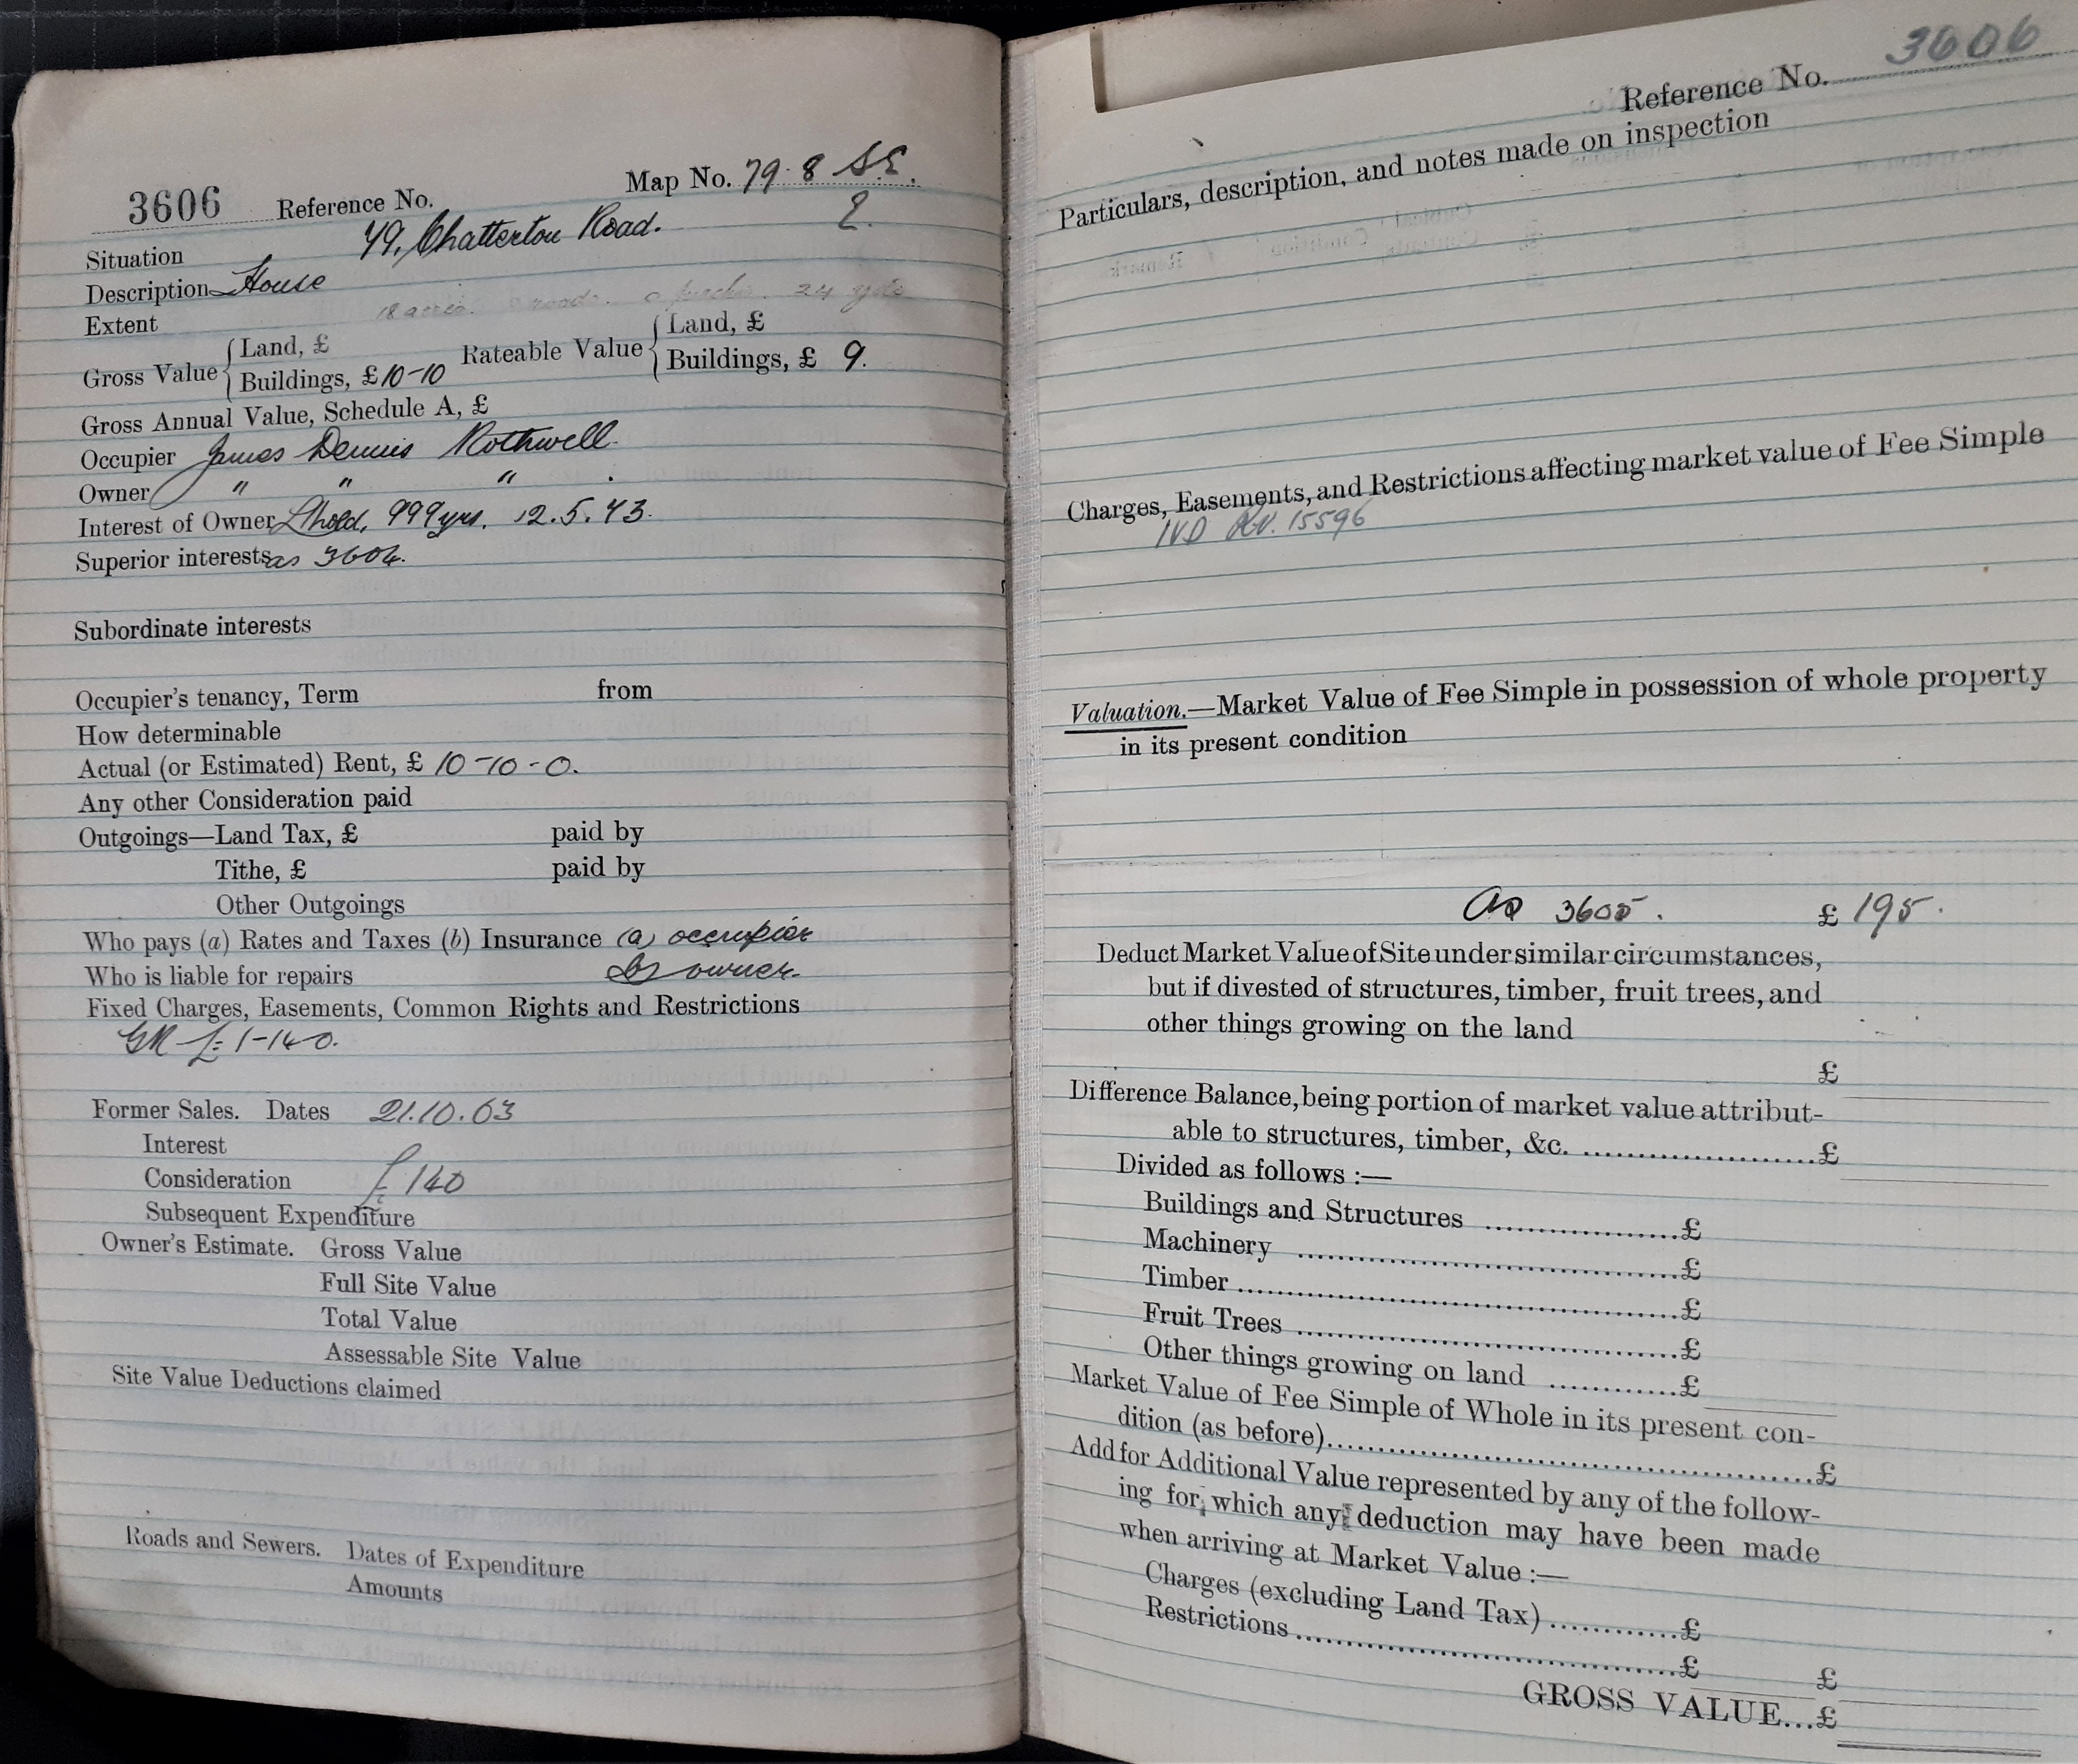 3606 Reference No. Map No. 79.8 S.E.
Situation 49, Chatterton Road. E.
Description House
Extent 18 acres. 0 roods. 0 perches. 24 yds
Gross Value { Land, £
Buildings, £ 10-10
Rateable Value { Land, £
Buildings, £ 9.
Gross Annual Value, Schedule A, £
Occupier James Dennis Rothwell
Owner " " "
Interest of Owner Lhold, 999 yrs. 12.5.43.
Superior interests as 3604.
Subordinate interests
Occupier's tenancy, Term from
How determinable
Actual (or Estimated) Rent, £ 10-10-0.
Any other Consideration paid
Outgoings—Land Tax, £ paid by
Tithe, £ paid by
Other Outgoings
Who pays (a) Rates and Taxes (b) Insurance (a) occupier
Who is liable for repairs (b) owner.
Fixed Charges, Easements, Common Rights and Restrictions
GR £1-14-0.
Former Sales. Dates 21.10.63
Interest
Consideration £140
Subsequent Expenditure
Owner's Estimate. Gross Value
Full Site Value
Total Value
Assessable Site Value
Site Value Deductions claimed
Roads and Sewers. Dates of Expenditure
Amounts
Reference No. 3606
Particulars, description, and notes made on inspection
Charges, Easements, and Restrictions affecting market value of Fee Simple
IVD 15596
Valuation.—Market Value of Fee Simple in possession of whole property
in its present condition
as 3605. £ 195.
Deduct Market Value of Site under similar circumstances,
but if divested of structures, timber, fruit trees, and
other things growing on the land
£
Difference Balance, being portion of market value attribut-
able to structures, timber, &c. ......................£
Divided as follows :—
Buildings and Structures ..................£
Machinery ..................£
Timber ..................£
Fruit Trees ..................£
Other things growing on land ............£
Market Value of Fee Simple of Whole in its present con-
dition (as before)..................£
Add for Additional Value represented by any of the follow-
ing for which any deduction may have been made
when arriving at Market Value :—
Charges (excluding Land Tax) ............£
Restrictions ..................£ £
GROSS VALUE...£